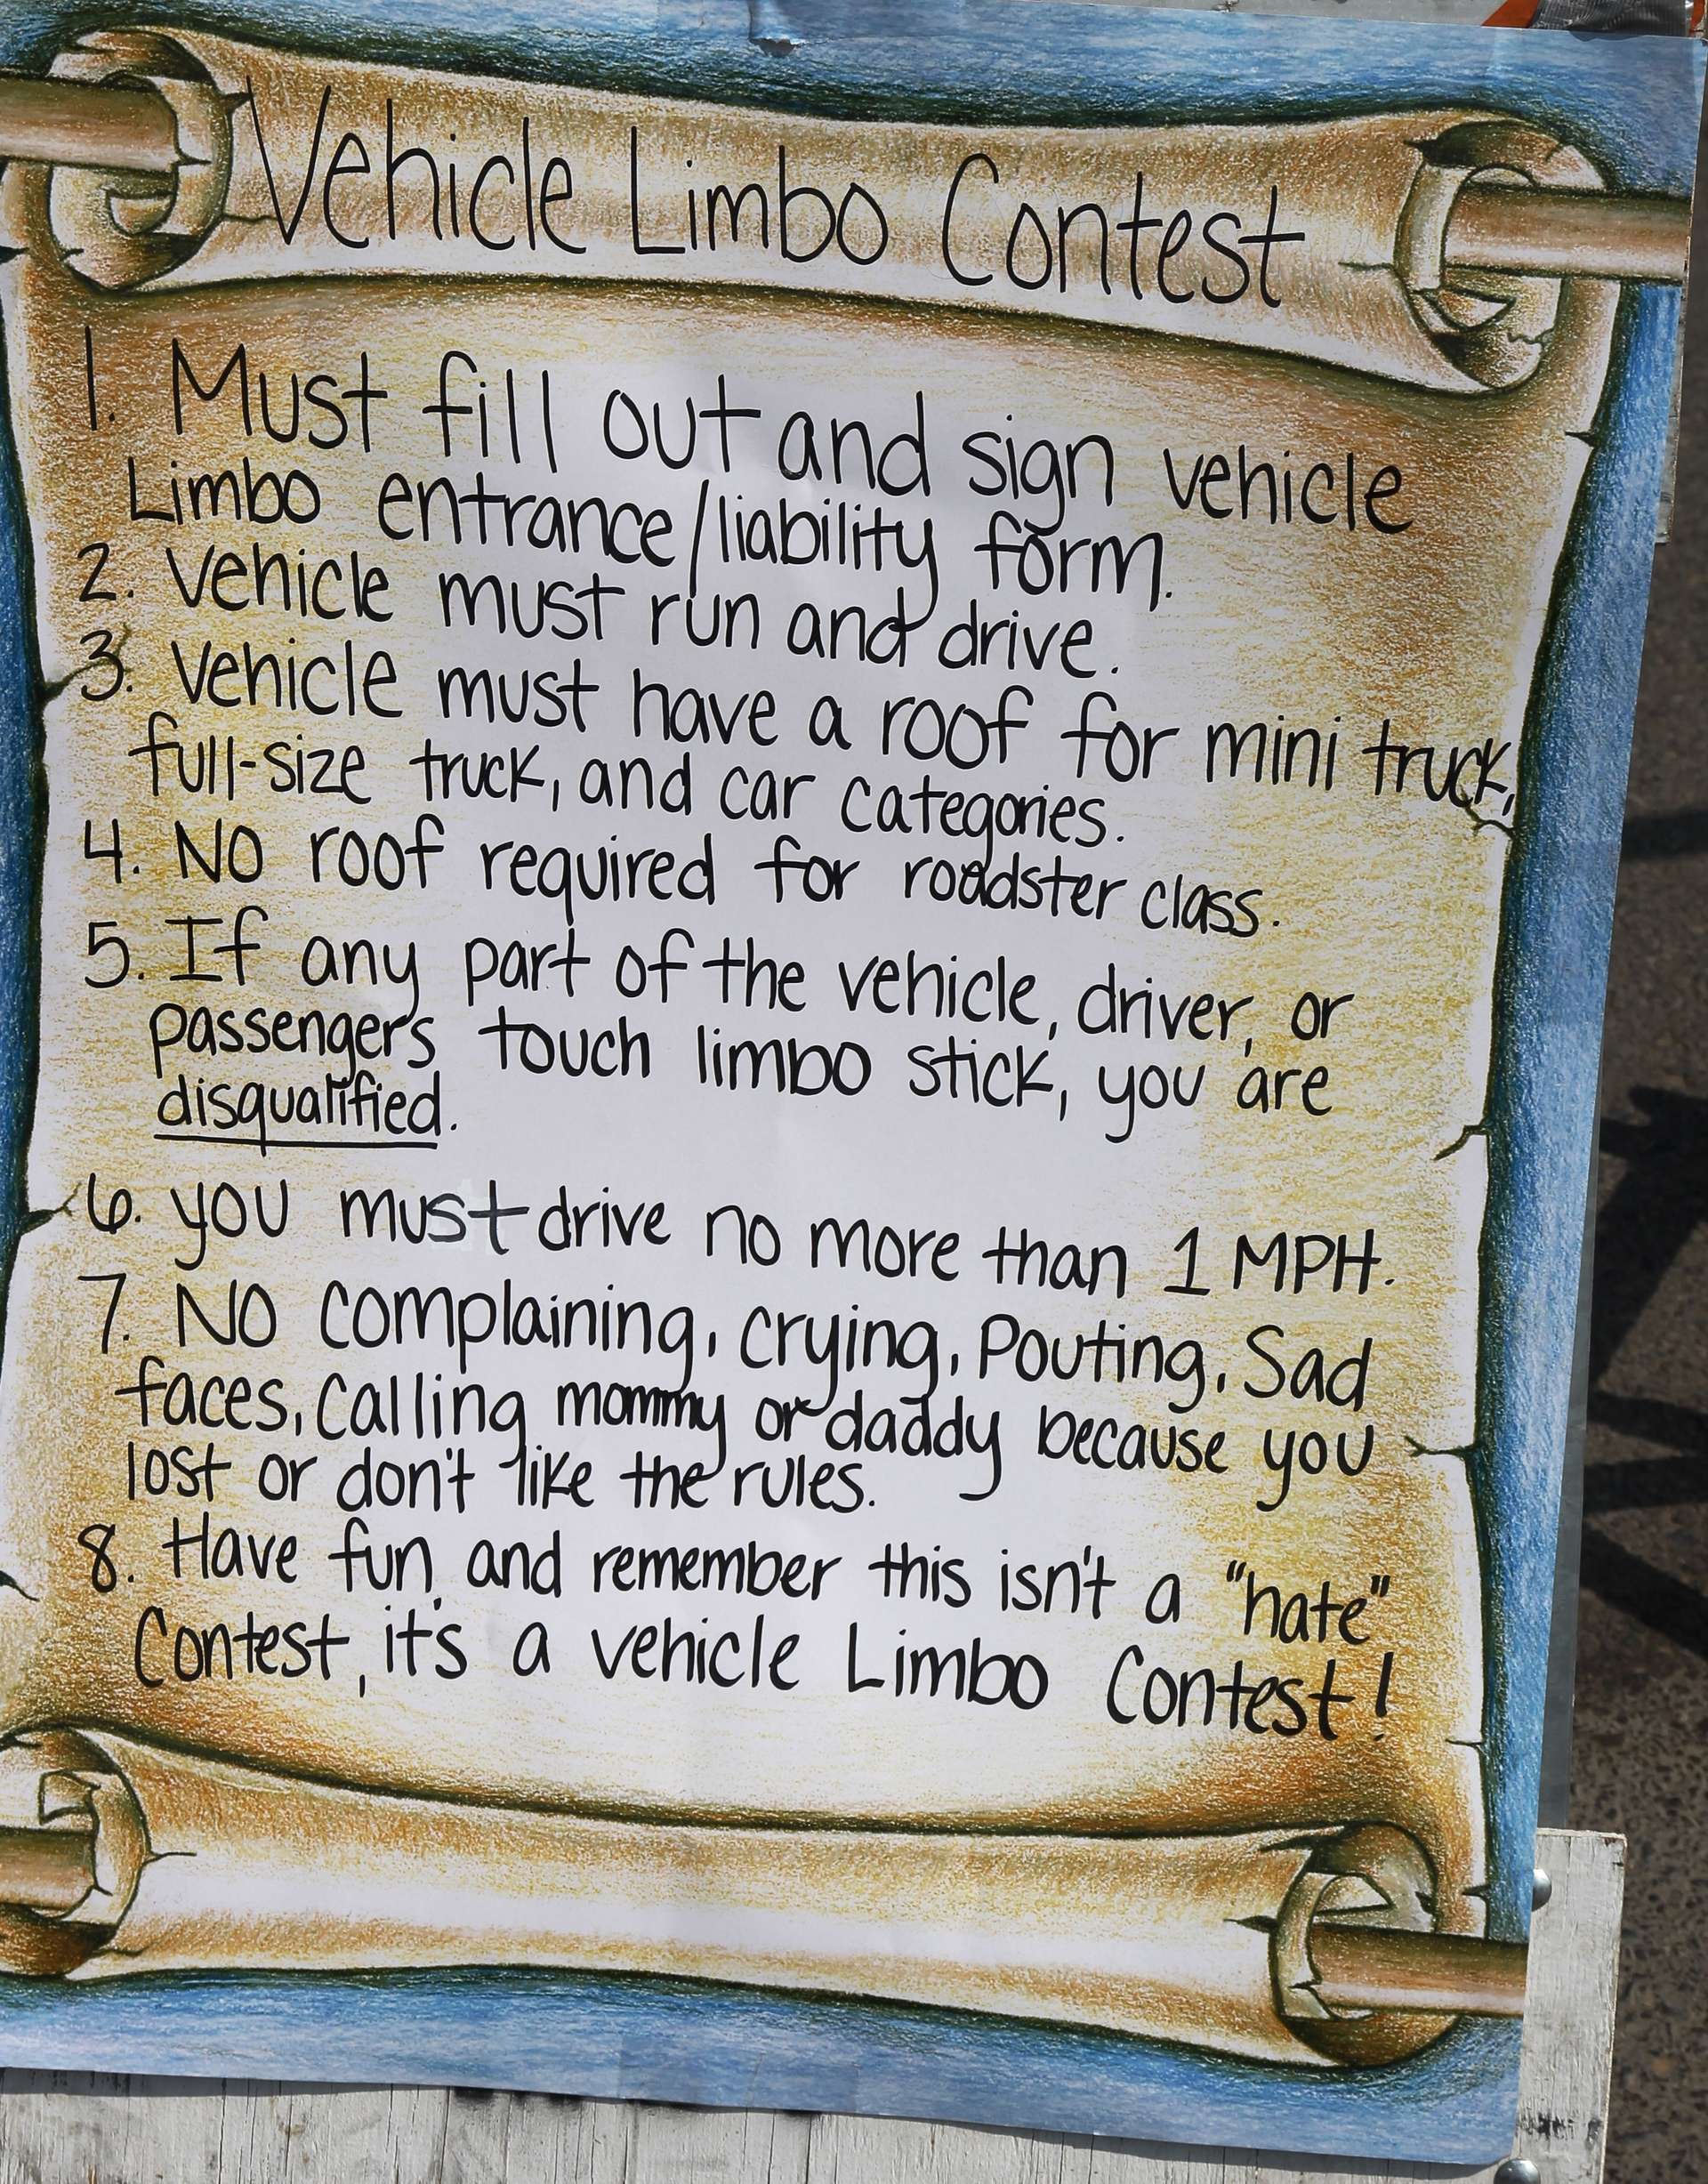 Vehicle Limbo Contest
1. Must fill out and sign vehicle
Limbo entrance/liability form.
2. vehicle must run and drive.
3. vehicle must have a roof for mini truck,
full-size truck, and car categories.
4. No roof required for roadster class.
5. If any part of the vehicle, driver, or
passengers touch limbo stick, you are
disqualified.
6. you must drive no more than 1 MPH.
7. No complaining, crying, Pouting, Sad
faces, Calling mommy or daddy because you
lost or don't like the rules.
8. Have fun and remember this isn't a "hate"
Contest, it's a vehicle Limbo Contest!